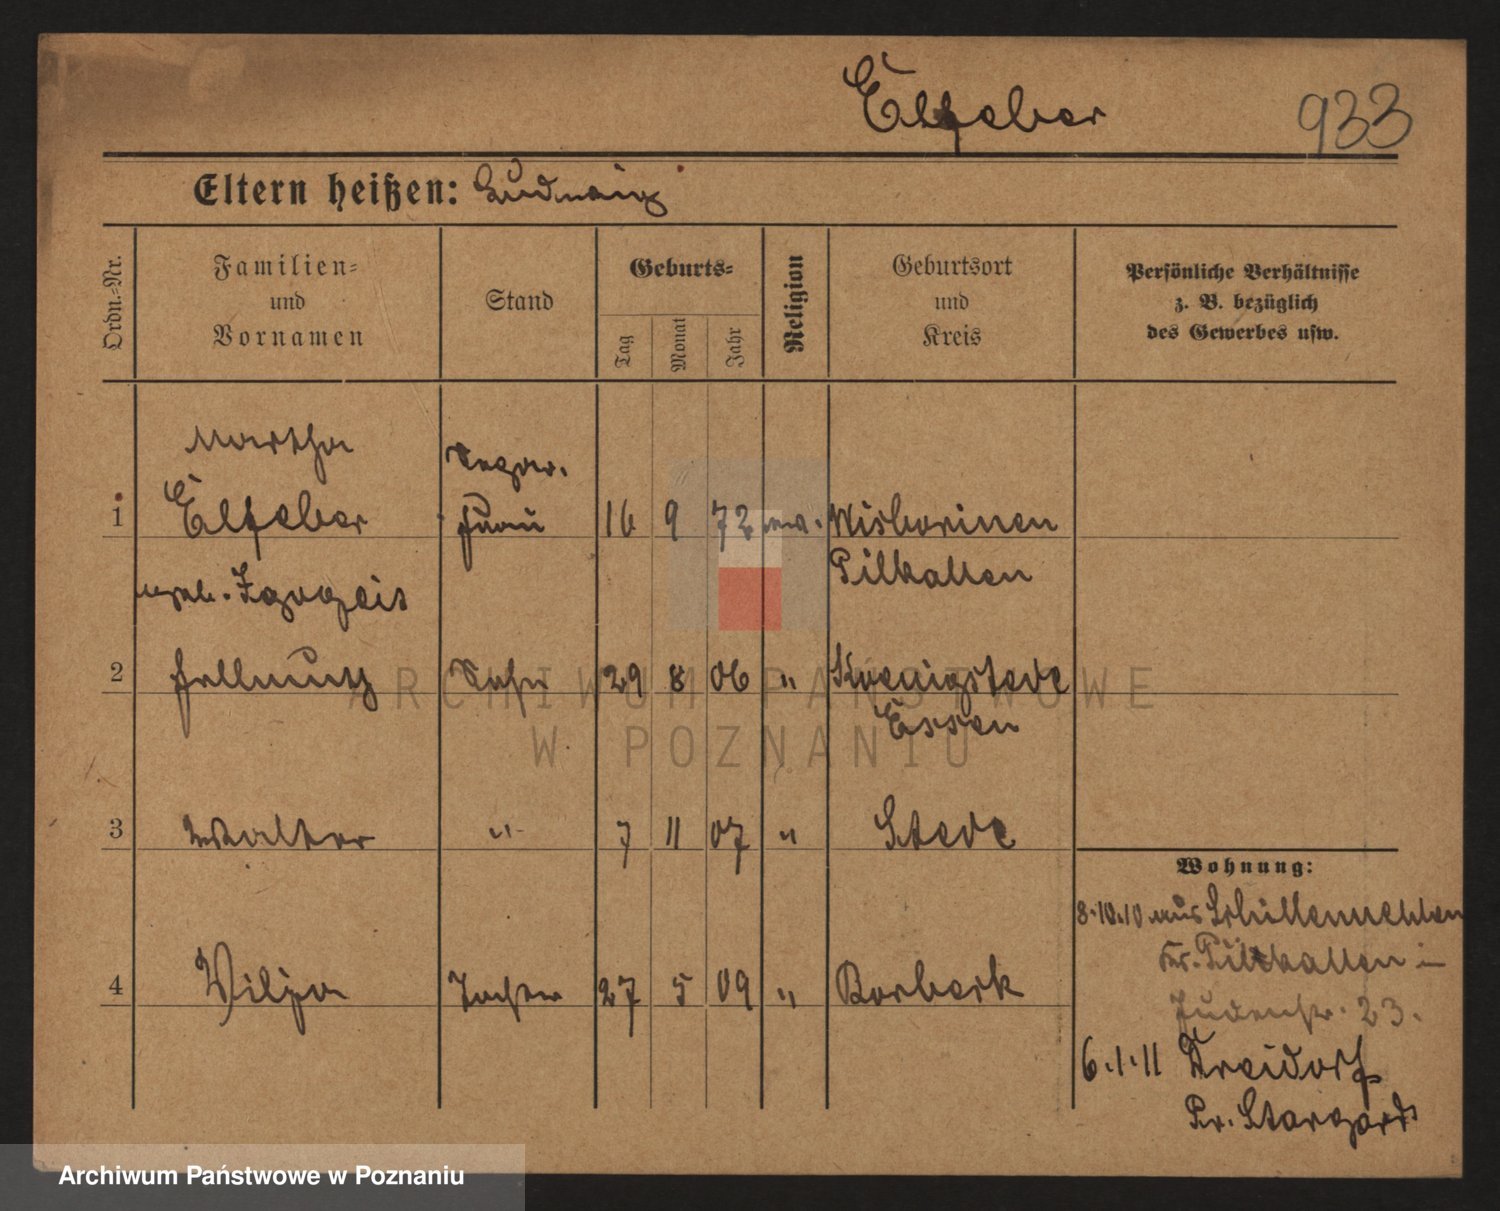 Elfeber 933
Eltern heißen: Ludwig
Ordn.-Nr.
Familien-
und
Vornamen
Stand
Geburts-
Tag
Monat
Jahr
Religion
Geburtsort
und
Kreis
Persönliche Verhältnisse
z. B. bezüglich
des Gewerbes usw.
Martha
1 Elfeber frau 16 9 72 Wisborinen
Pillkallen
2 Hellmuth Sohn 29 8 06 " Koenigstede
Essen
3 Walter " 7 11 07 " Stede
Wohnung:
8.10.10 aus
Kr. Pillkallen
4 Tochter 27 5 09 " Borbeck
Judenstr. 23.
6.1.11 Kreidorf
Pr. Stargard
ARCHIWUM PAŃSTWOWE
W POZNANIU
Archiwum Państwowe w Poznaniu